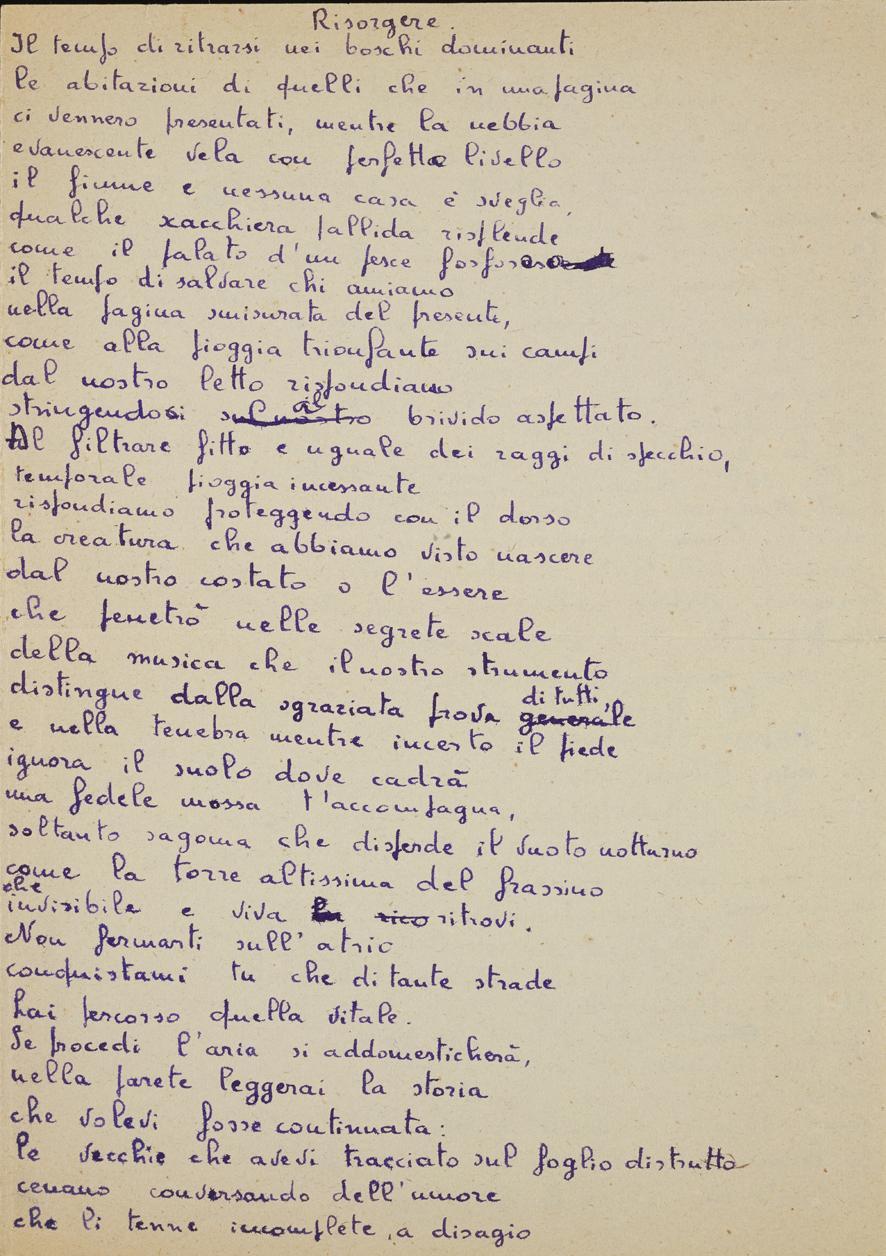 Risorgere.
Il tempo di ritrarsi nei boschi dominanti
le abitazioni di quelli che in una pagina
ci vennero presentati, mentre la nebbia
evanescente vela con perfetto livello
il fiume e nessuna casa è sveglia,
qualche zacchiera pallida risplende
come il palato d'un pesce
il tempo di salvare chi amiamo
nella pagina smisurata del presente,
come alla pioggia trionfante sui campi
dal nostro letto rispondiamo
stringendosi sul nostro al brivido aspettato.
Al filtrare fitto e uguale dei raggi di specchio,
temporale pioggia incessante
rispondiamo proteggendo con il dorso
la creatura che abbiamo visto nascere
dal nostro costato o l'essere
che penetrò nelle segrete scale
della musica che il nostro strumento
distingue dalla sgraziata prova generale di tutti,
e nella tenebra mentre incerto il piede
ignora il suolo dove cadrà
una fedele mossa t'accompagna,
soltanto sagoma che disperde il vuoto notturno
come la torre altissima del frassino
che invisibile e viva ritrovi.
Non fermarti sull'atrio
conquistami tu che di tante strade
hai percorso quella vitale.
Se procedi l'aria si addomesticherà,
nella parete leggerai la storia
che volevi fosse continuata:
le vecchie che avevi tracciato sul foglio distrutto
cenano conversando dell'umore
che li tenne incomplete, a disagio